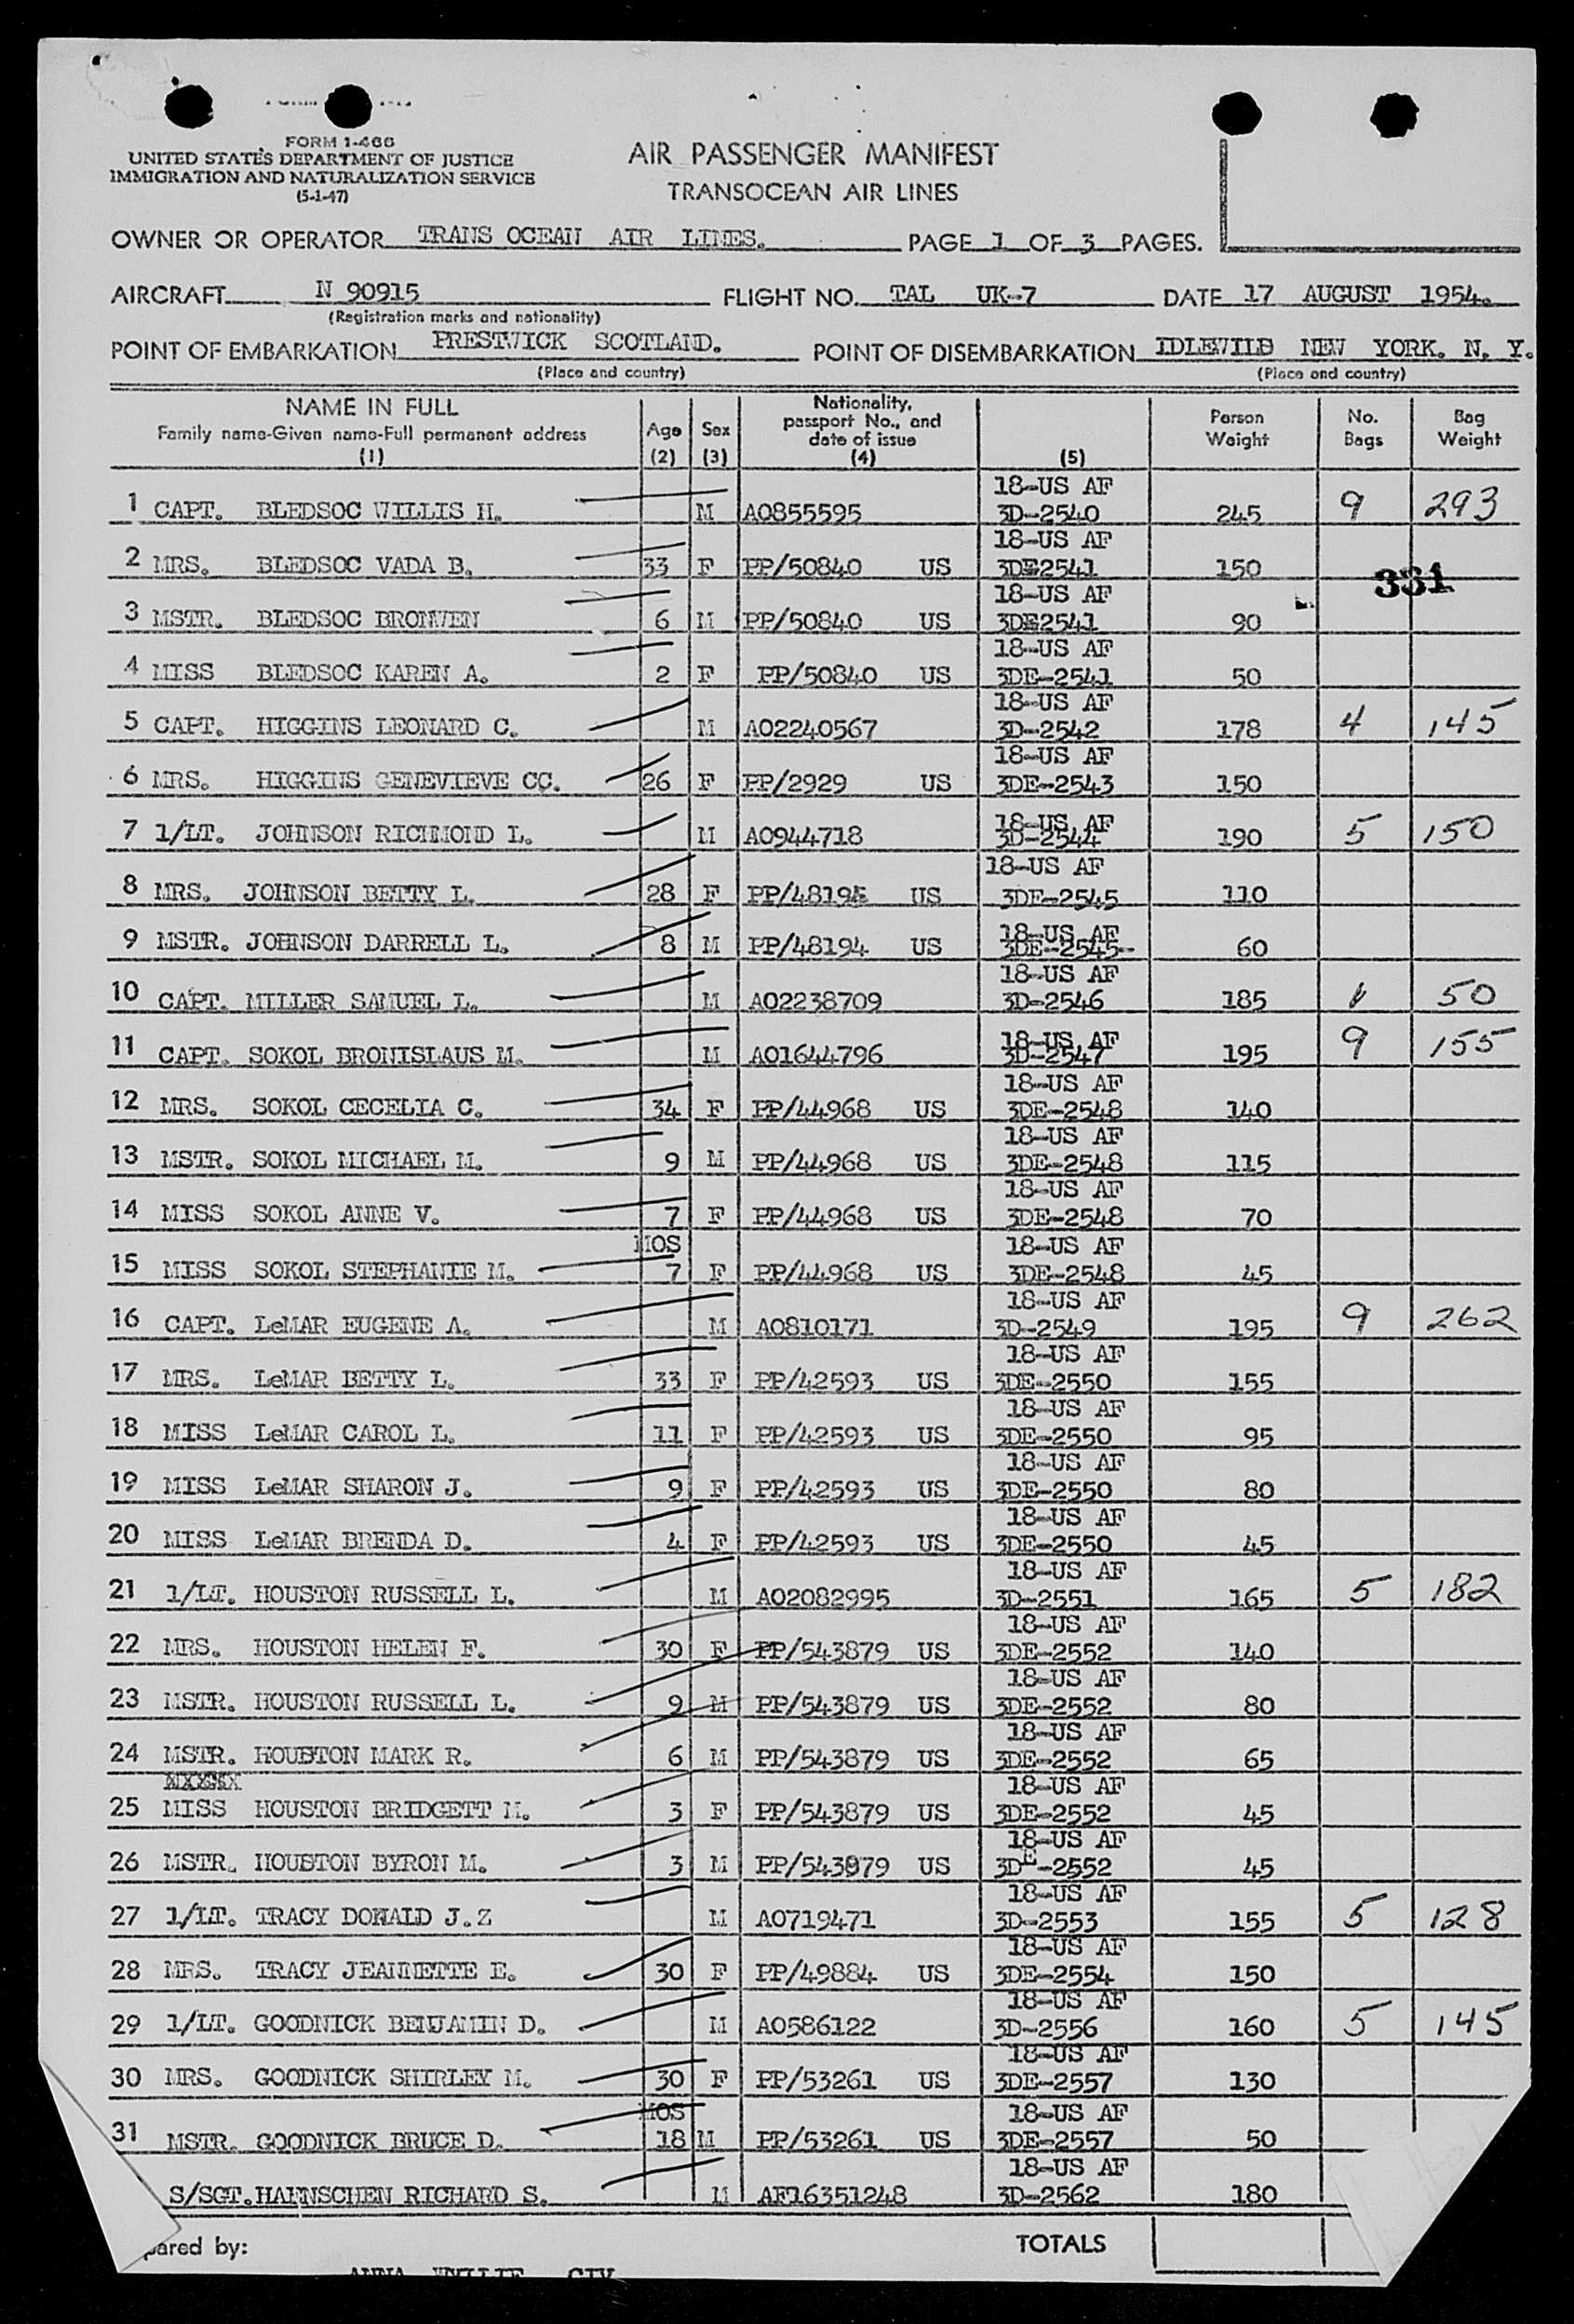 FORM 1-466
UNITED STATES DEPARTMENT OF JUSTICE
IMMIGRATION AND NATURALIZATION SERVICE
(5-1-47)
AIR PASSENGER MANIFEST
TRANSOCEAN AIR LINES
OWNER OR OPERATOR TRANS OCEAN AIR LINES. PAGE 1 OF 3 PAGES.
AIRCRAFT N 90915 FLIGHT NO. TAL UK-7 DATE 17 AUGUST 1954.
(Registration marks and nationality)
POINT OF EMBARKATION PRESTWICK SCOTLAND. POINT OF DISEMBARKATION IDLEWILD NEW YORK. N. Y.
(Place and country) (Place and country)
NAME IN FULL Family name-Given name-Full permanent address (1) Age (2) Sex (3) Nationality, passport No., and date of issue (4) (5) Person Weight No. Bags Bag Weight
18-US AF
1 CAPT. BLEDSOC WILLIS H. M AO855595 3D-2540 245 9 293
18-US AF
2 MRS. BLEDSOC VADA B. 33 F PP/50840 US 3DE2541 150
331
18-US AF
3 MSTR. BLEDSOC BRONWEN 6 M PP/50840 US 3DE2541 90
18-US AF
4 MISS BLEDSOC KAREN A. 2 F PP/50840 US 3DE-2541 50
18-US AF
5 CAPT. HIGGINS LEONARD C. M AO2240567 3D-2542 178 4 145
18-US AF
6 MRS. HIGGINS GENEVIEVE CC. 26 F PP/2929 US 3DE-2543 150
18-US AF
7 1/LT. JOHNSON RICHMOND L. M AO944718 3D-2544 190 5 150
18-US AF
8 MRS. JOHNSON BETTY L. 28 F US 3DE-2545 110
18-US AF
9 MSTR. JOHNSON DARRELL L. 8 M PP/48194 US 3DE-2545- 60
18-US AF
10 CAPT. MILLER SAMUEL L. M AO2238709 3D-2546 185 50
18-US AF
11 CAPT. SOKOL BRONISLAUS M. M AO1644796 3D-2547 195 9 155
18-US AF
12 MRS. SOKOL CECELIA C. 34 F PP/44968 US 3DE-2548 140
18-US AF
13 MSTR. SOKOL MICHAEL M. 9 M PP/44968 US 3DE-2548 115
18-US AF
14 MISS SOKOL ANNE V. 7 F PP/44968 US 3DE-2548 70
MOS 18-US AF
15 MISS SOKOL STEPHANIE M. 7 F PP/44968 US 3DE-2548 45
18-US AF
16 CAPT. LeMAR EUGENE A. M AO810171 3D-2549 195 9 262
18-US AF
17 MRS. LeMAR BETTY L. 33 F PP/42593 US 3DE-2550 155
18-US AF
18 MISS LeMAR CAROL L. 11 F PP/42593 US 3DE-2550 95
18-US AF
19 MISS LeMAR SHARON J. 9 F PP/42593 US 3DE-2550 80
18-US AF
20 MISS LeMAR BRENDA D. 4 F PP/42593 US 3DE-2550 45
18-US AF
21 1/LT. HOUSTON RUSSELL L. M AO2082995 3D-2551 165 5 182
18-US AF
22 MRS. HOUSTON HELEN F. 30 F PP/543879 US 3DE-2552 140
18-US AF
23 MSTR. HOUSTON RUSSELL L. 9 M PP/543879 US 3DE-2552 80
18-US AF
24 MSTR. HOUSTON MARK R. 6 M PP/543879 US 3DE-2552 65
18-US AF
25 MISS HOUSTON BRIDGETT M. 3 F PP/543879 US 3DE-2552 45
18-US AF
26 MSTR. HOUSTON BYRON M. 3 M PP/543879 US 3DE-2552 45
18-US AF
27 1/LT. TRACY DONALD J.Z M AO719471 3D-2553 155 5 128
18-US AF
28 MRS. TRACY JEANNETTE E. 30 F PP/49884 US 3DE-2554 150
18-US AF
29 1/LT. GOODNICK BENJAMIN D. M AO586122 3D-2556 160 5 145
18-US AF
30 MRS. GOODNICK SHIRLEY M. 30 F PP/53261 US 3DE-2557 130
MOS 18-US AF
31 MSTR. GOODNICK BRUCE D. 18 M PP/53261 US 3DE-2557 50
18-US AF
S/SGT. HAENSCHEN RICHARD S. M AF16351248 3D-2562 180
pared by: TOTALS